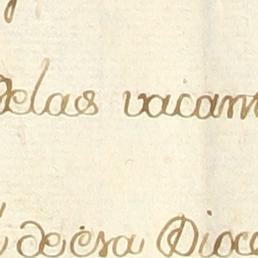 delas vacan
de esa Dioce